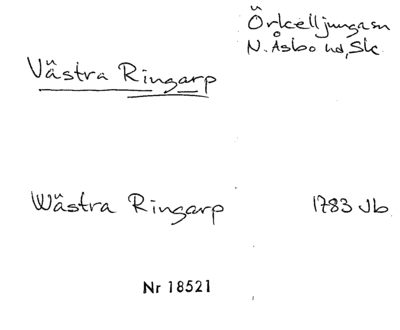 Örkelljunga sn
N. Åsbo hd, Sk.
Västra Ringarp
Wästra Ringarp 1783 Jb
Nr 18521